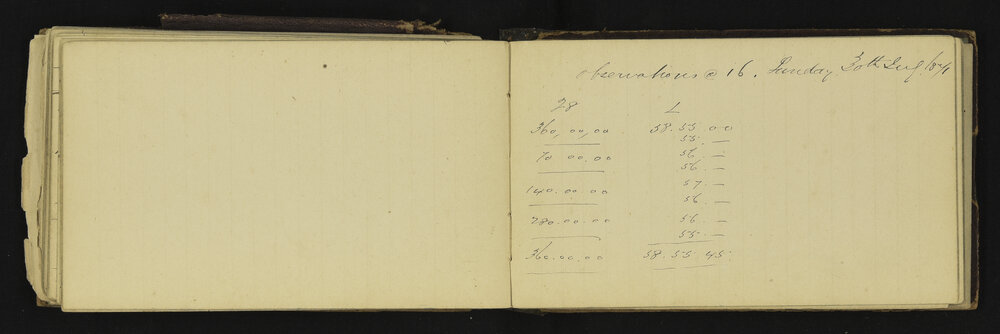 Observations @ 16. Sunday 30th Aug. 1874
28 L
360,00,00 58.55 00
55. —
70 00.00 56 —
56. —
140.00.00 57. —
56. —
280.00.00 56. —
55. —
360.00.00 58.55 45.